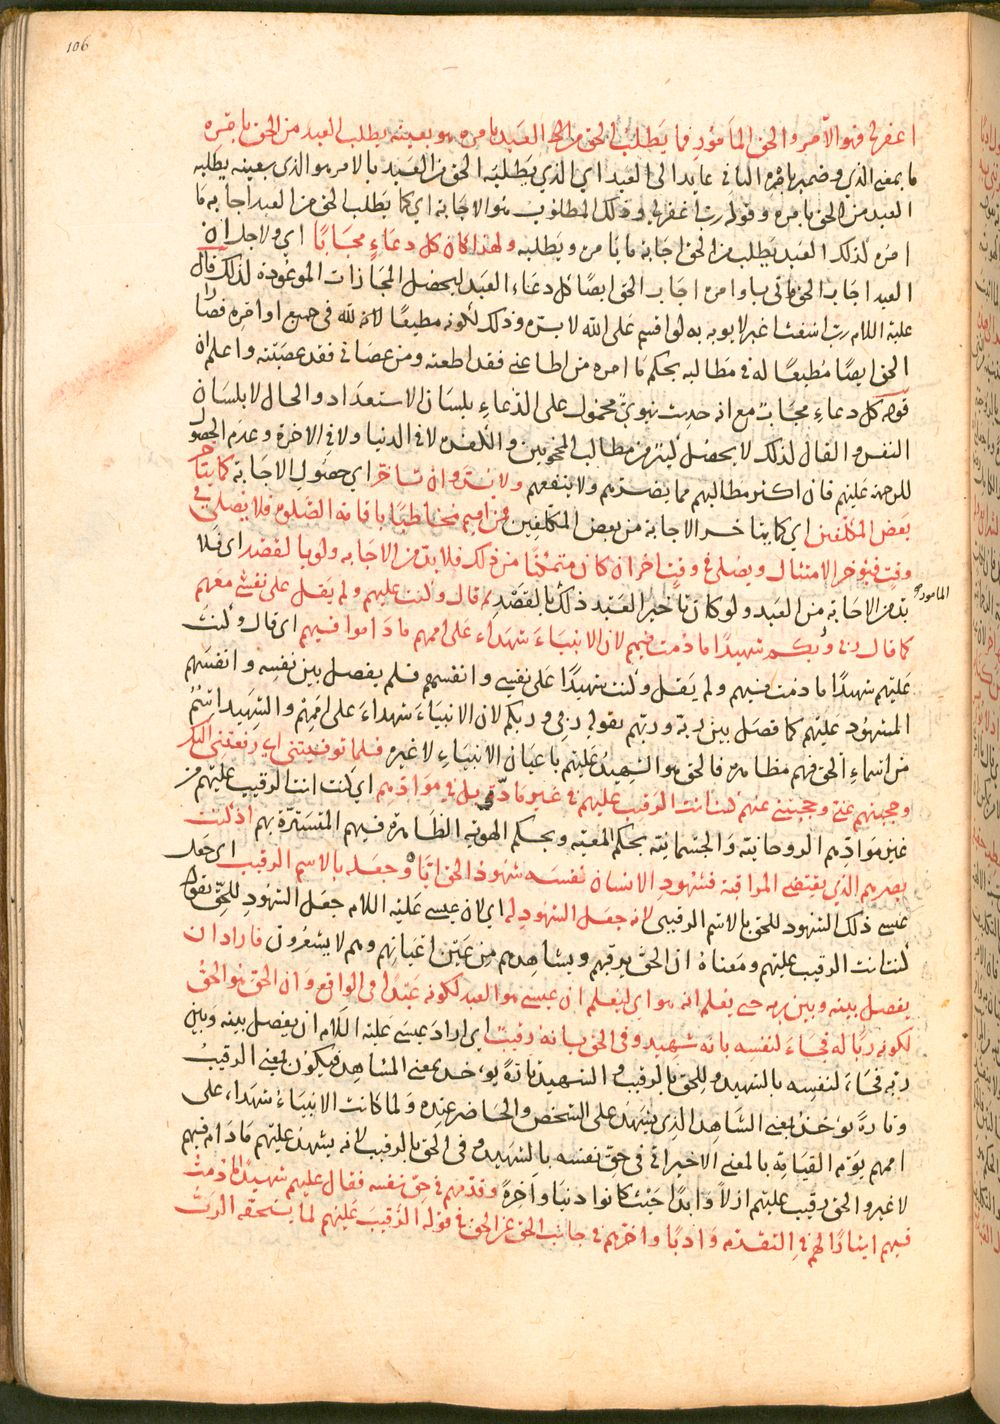 106
اغفرلي فهو الآمر والحق المأمور فما يطلب الحق من العبد بامره هو بعينه يطلب العبد من الحق بامره
ما بمعنى الذي وضمير بامره الثاني عايد الى العبد اي الذي يطلبه الحق من العبد بالامر هو الذي بعينه يطلبه
العبد من الحق بامره وقوله رب اغفرلي وذلك المطلوب هو الاجابة اي كما يطلب الحق من العبد اجابه ما
امره لذلك العبد يطلب من الحق اجابة ما يامره ويطلبه ولهذا كان كل دعاءٍ مجابًا اي ولاجل ان
العبد اجاب الحق واتى باوامره اجاب الحق ايضًا كل دعاء العبد ليحصل المجازات الموعودة لذلك قال
عليه السلام رب اشعث اغبر لا يوبه به لو اقسم على الله لابره وذلك لكونه مطيعًا لله في جميع اوامره فصار
الحق ايضًا مطيعًا له في مطالبه بحكم ما امره من اطاعني فقد اطعته ومن عصاني فقد عصيته واعلم ان
قوله كل دعاءٍ مجابٌ مع انه حديث نبوي محمول على الدعاء بلسان الاستعداد والحال لا بلسان
النفس والقال لذلك لا يحصل كثير من مطالب المحجوبين والكفره لا في الدنيا ولا في الاخرة وعدم الحصول
للرحمة عليهم فان اكثر مطالبهم مما يضرهم ولا ينفعهم ولا بد وان تاخر اي حصول الاجابة كما يتاخر
بعض المكلفين اي كما يتاخر الاجابة من بعض المكلفين ممن اقيم مخاطبًا باقامة الصلوة فلا يصلي في
وقت فيؤخر الامتثال ويصلي في وقت اخر ان كان متمكنًا من ذلك فلا بد من الاجابه ولو بالقصد اي فلا
بد من الاجابة من العبد ولو كان تاخير العبد ذلك بالقصد ثم قال وكنت عليهم ولم يقل على نفسي معهم
المامور به
كما قال ربي وربكم شهيدًا ما دمت فيهم لان الانبياء شهداء على اممهم ما داموا فيهم اي قال وكنت
عليهم شهيدًا ما دمت فيهم ولم يقل وكنت شهيدًا على نفسي وانفسهم فلم يفصل بين نفسه وانفسهم
المشهود عليهم كما فصل بين ربه وربهم بقوله ربي وربكم لان الانبياء شهداء على اممهم والشهيد اسم
من اسماء الحق فهم مظاهره فالحق هو الشهيد عليهم باعيان الانبياء لا غيره فلما توفيتني اي رفعتني اليك
وحجبتهم عني وحجبتني عنهم كنت انت الرقيب عليهم في غير مادتي بل في موادهم اي كنت انت الرقيب عليهم من
غير موادهم الروحانية والجسمانية بحكم المعية وبحكم الهوية الظاهرة فيهم المتسترة بهم اذ كنت
بصرهم الذي يقتضي المراقبة فشهود الانسان نفسه شهود الحق اياه وجعله بالاسم الرقيب اي جعل
عيسى ذلك الشهود للحق بالاسم الرقيب لانه جعل الشهود له اي لان عيسى عليه اللام جعل الشهود للحق بقوله
كنت انت الرقيب عليهم ومعناه ان الحق يرقبهم ويشاهدهم من عين اعيانهم وهم لا يشعرون فاراد ان
يفصل بينه وبين ربه حتى يعلم انه هو اي ليعلم ان عيسى هو العبد لكونه عبدًا في الواقع وان الحق هو الحق
لكونه ربًا له فجاء لنفسه بانه شهيد وفي الحق بانه رقيب اي اراد عيسى عليه اللام ان يفصل بينه وبين
ربه فجاء لنفسه بالشهيد وللحق بالرقيب والشهيد تارةً يؤخذ بمعنى المشاهد فيكون بمعنى الرقيب
وتارةً يؤخذ بمعنى الشاهد الذي يشهد على الشخص والحاضر عنده ولما كانت الانبياء شهداء على
اممهم يوم القيامة بالمعنى الاخير اتى في حق نفسه بالشهيد وفي الحق بالرقيب لانه يشهد عليهم ما دام فيهم
لا غير والحق رقيب عليهم ازلاً وابدًا حيث كانوا دنيا واخرةً وقدمهم في حق نفسه فقال عليهم شهيدًا ما دمت
فيهم ايثارًا لهم في التقدم وادبًا واخرهم في جانب الحق عن الحق في قوله الرقيب عليهم لما يستحقه الرب